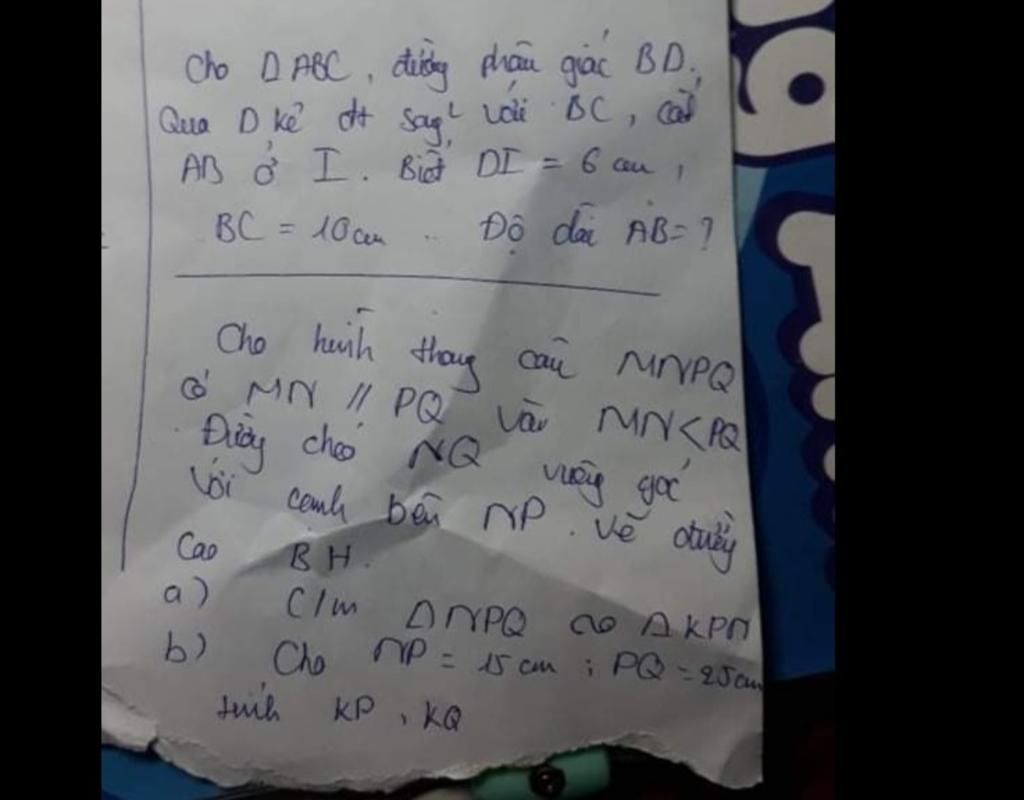 Cho Δ ABC, đường phân giác BD.
Qua D kẻ đt sog² với BC, cắt
AB ở I. Biết DI = 6 cm,
BC = 10cm .. Độ dài AB = ?
Cho hình thang cân MNPQ
có MN // PQ và MN < PQ
Đường chéo NQ vuông góc
với cạnh bên NP. Vẽ đường
cao BH.
a) C/m ΔNPQ ∽ ΔKPN
b) Cho NP = 15 cm ; PQ = 25cm
tính KP, KQ